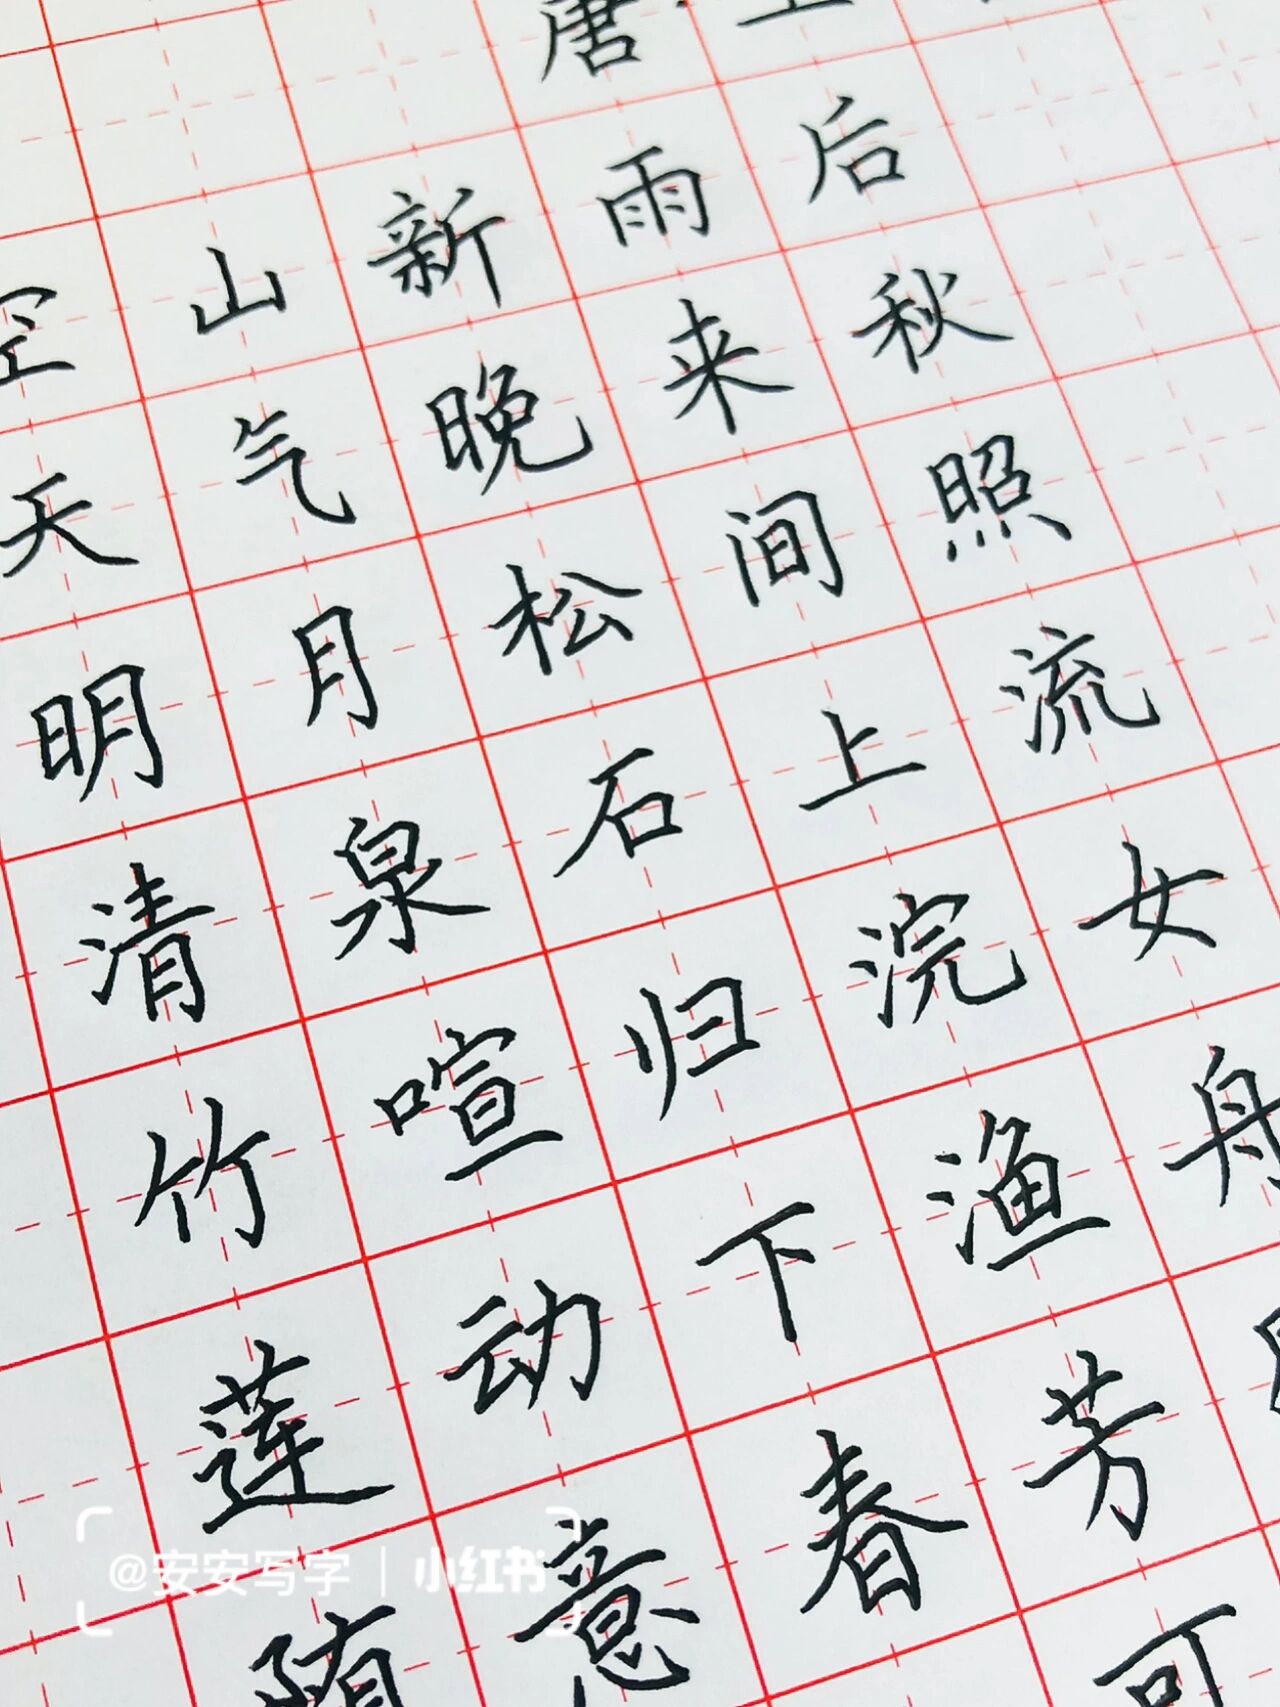 唐
空山新雨后
天气晚来秋
明月松间照
清泉石上流
竹喧归浣女
莲动下渔舟
随意春芳
可
@安安写字 | 小红书